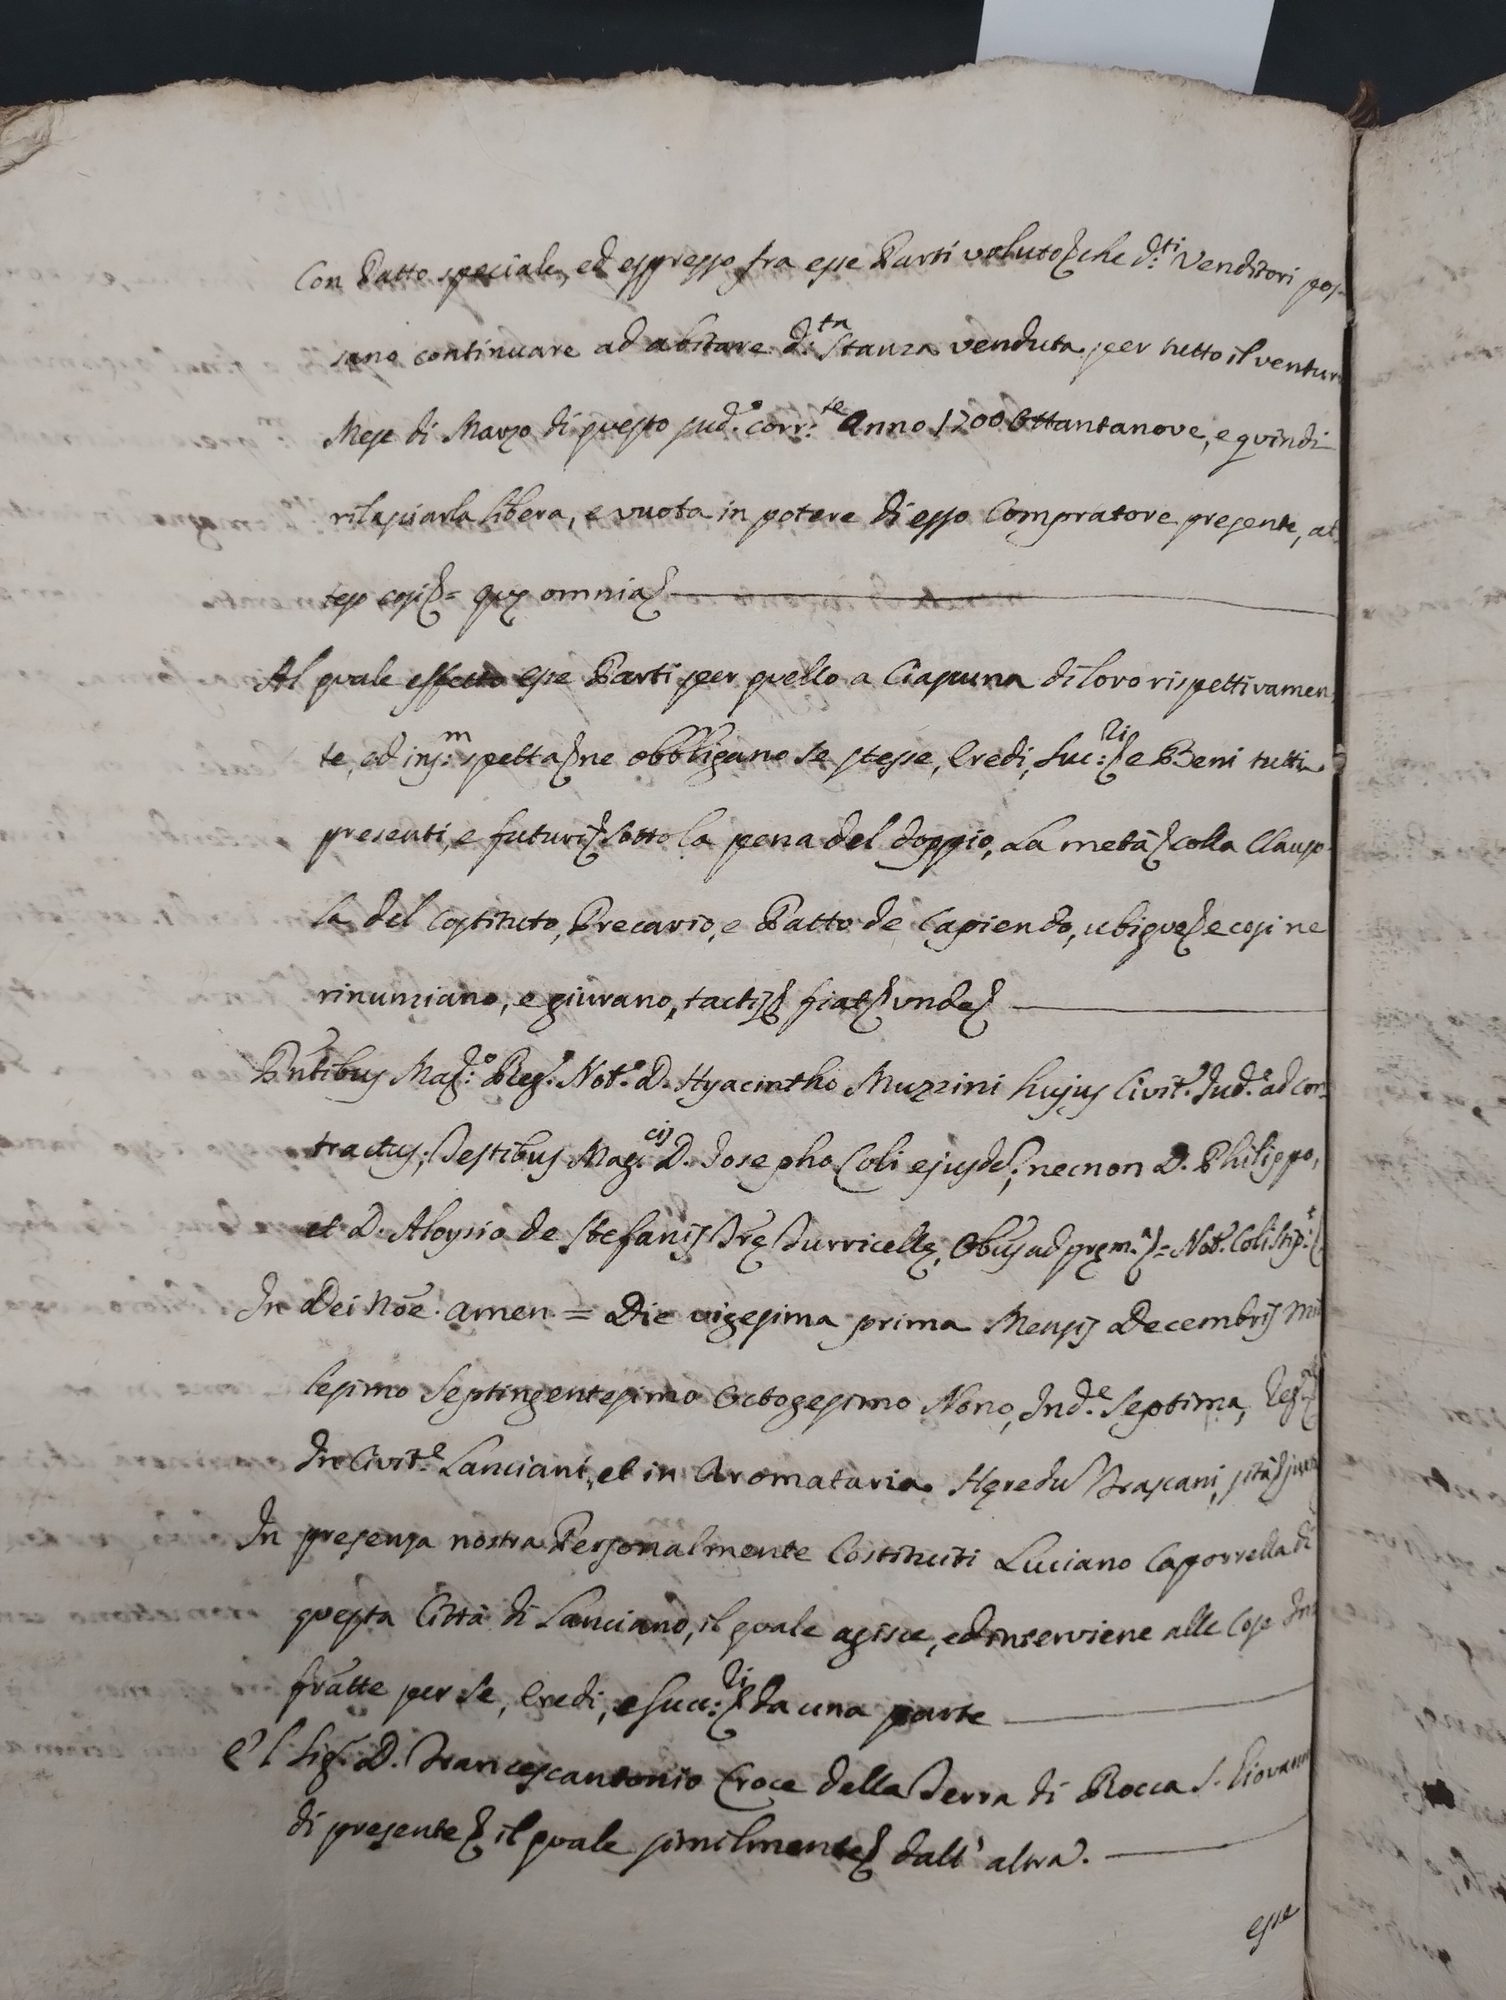 Con Patto speciale, ed espresso fra esse Parti voluto che d:ti Venditori pos-
sano continuare ad abitare d:ta Stanza venduta per tutto il ventur
Mese di Marzo di questo sud.o corr:te Anno 1700 Ottantanove, e quindi
rilasciarla libera, e vuota in potere di esso Compratore presente, ac
tes così = quę omnia
Al quale effetto esse Parti per quello a Ciascuna di loro rispettivamen
te, ed ins:m spetta ne obbligano se stesse, Eredi, Suc:ri e Beni tutti
presenti, e futuri Sotto la pena del doppio, La metà colla Clauso
la del Costituto, Precario, e Patto de Capiendo, ubique e così ne
rinunziano, e giurano, tactis fiat unde
Pntibus Mag:o Reg.o Not.o D. Hyacintho Muzzini hujus Civit.s Jud.e ad con-
tractus; Testibus Mag:cis D. Josepho Coli ejusd; necnon D. Philippo,
et D. Aloysio de Stefanis Tre Turricellę, Obus ad pręm.a = Not.s Coli Stip:t
In Dei Nõe. Amen = Die vigesima prima Mensis Decembris Mil
lesimo Septingentesimo Octogesimo Nono, Ind.e Septima,
In Civit.e Lanciani, et in Aromataria Hęredu Trascani, sità jux
In presenza nostra Personalmente Costituiti Luciano Caporrella di
questa Città di Lanciano, il quale agisce, ed interviene alle Cose Inf
fratte per se, Eredi, e Succ:ri da una parte
E'l Sig.r D. Francescantonio Croce della Terra di Rocca S. Giovanni
di presente il quale similmente dall' altra.
esse